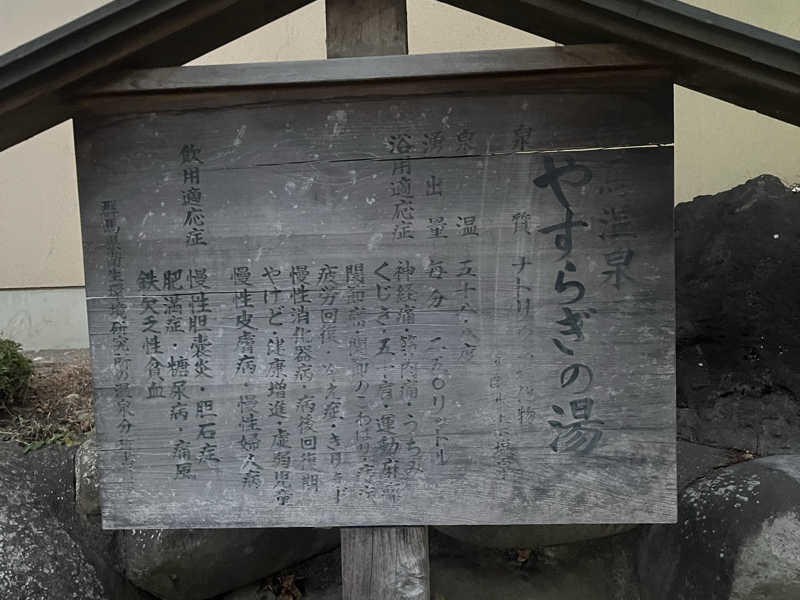 馬温泉
やすらぎの湯
泉質 ナトリウム
泉温 五十六・八度
湧出量 毎分 二五〇リットル
浴用適応症 神経痛・筋肉痛・うちみ
くじき・五十肩・運動麻痺
関節痛・関節のこわばり・痔疾
疲労回復・冷え症・きりきず
慢性消化器病・病後回復期
やけど・健康増進・虚弱児童
慢性皮膚病・慢性婦人病
飲用適応症 慢性胆嚢炎・胆石症
肥満症・糖尿病・痛風
鉄欠乏性貧血
群馬県衛生環境研究所の温泉分析書